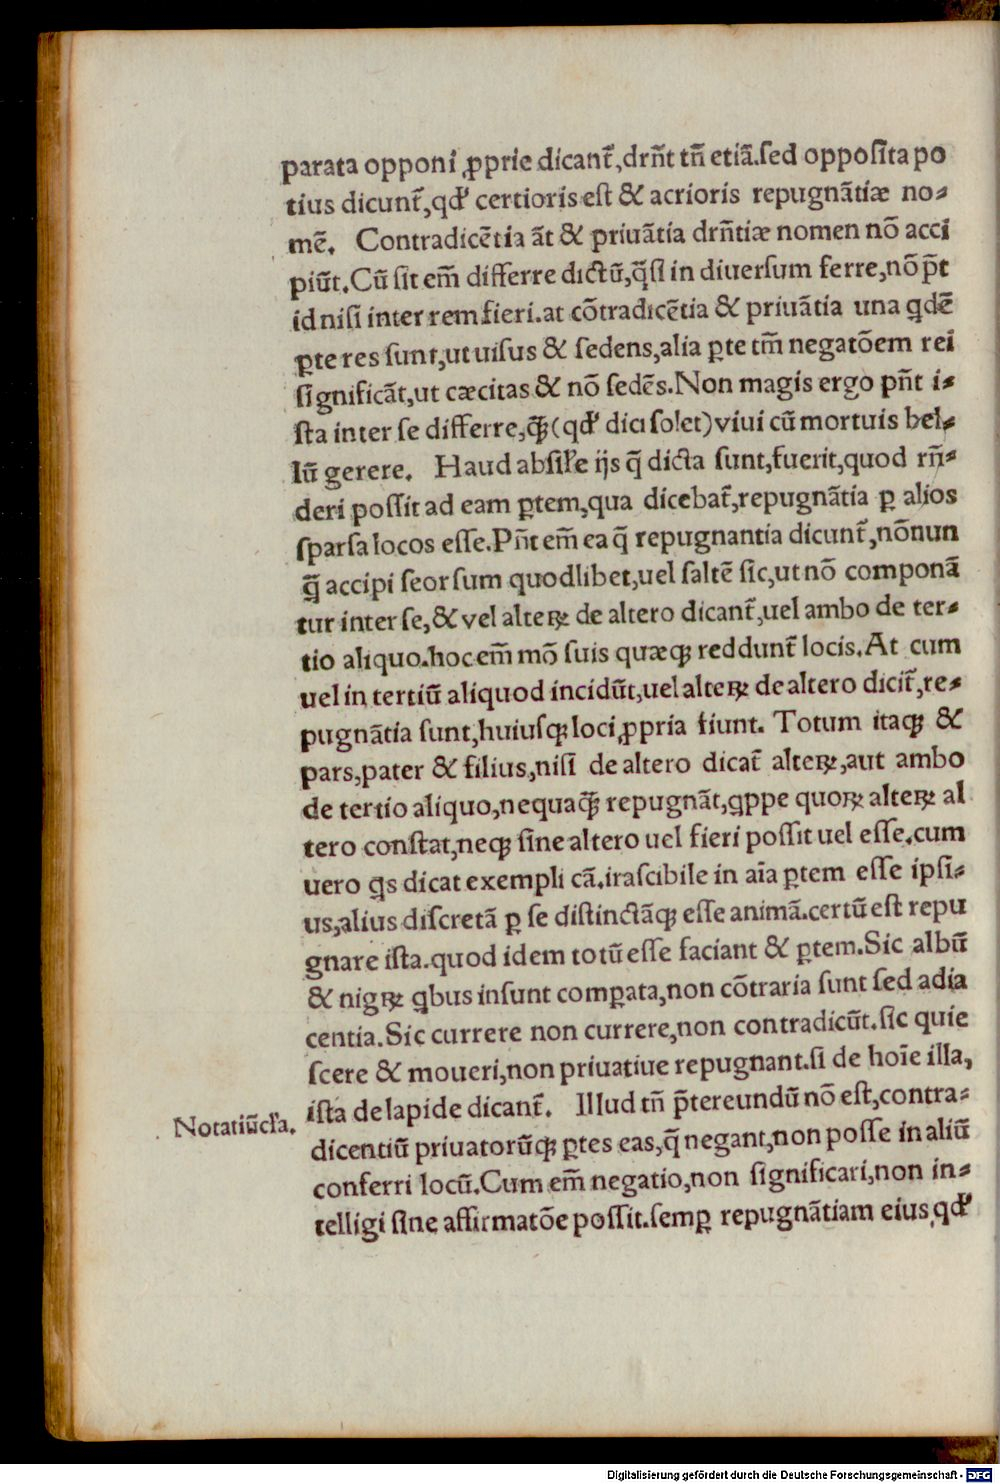 parata opponi ꝓprie dicant᷑,drñt tñ etiã.ſed oppoſita po
tius dicunt᷑,qđ certioris eſt & acrioris repugnãtiæ no⸗
mẽ. Contradicẽtia ãt & priuãtia drñtiæ nomen nõ acci
piũt.Cũ ſit em̃ differre dictũ,q̃ſi in diuerſum ferre,nõ p̃t
id niſi inter rem fieri.at cõtradicẽtia & priuãtia una qdẽ
ꝑte res ſunt,ut uiſus & ſedens,alia ꝑte tm̃ negatõem rei
ſignificãt,ut cæcitas & nõ ſedẽs.Non magis ergo pñt i⸗
ſta inter ſe differre,q̃ꝫ(qđ dici ſolet)viui cũ mortuis bel⸗
lũ gerere. Haud abſiłe ijs q̃ dicta ſunt,fuerit,quod rñ⸗
deri poſſit ad eam ꝑtem,qua dicebat᷑,repugnãtia ꝑ alios
ſparſa locos eſſe.Pñt em̃ ea q̃ repugnantia dicunt᷑,nõnun
q̃ accipi ſeorſum quodlibet,uel ſaltẽ ſic,ut nõ componã
tur inter ſe,& vel alteꝝ de altero dicant᷑,uel ambo de ter⸗
tio aliquo.hoc em̃ mõ ſuis quæqꝫ reddunt᷑ locis.At cum
uel in tertiũ aliquod incidũt,uel alteꝝ de altero dicit᷑,re⸗
pugnãtia ſunt,huiuſqꝫ loci ꝓpria fiunt. Totum itaqꝫ &
pars,pater & filius,niſi de altero dicat᷑ alteꝝ,aut ambo
de tertio aliquo,nequaq̃ꝫ repugnãt,qppe quoꝝ alteꝝ al
tero conſtat,neqꝫ ſine altero uel fieri poſſit uel eſſe.cum
uero qs dicat exempli cã.iraſcibile in aĩa ꝑtem eſſe ipſi⸗
us,alius diſcretã ꝑ ſe diſtinctãqꝫ eſſe animã.certũ eſt repu
gnare iſta.quod idem totũ eſſe faciant & ꝑtem.Sic albũ
& nigꝝ qbus inſunt comꝑata,non cõtraria ſunt ſed adia
centia.Sic currere non currere,non contradicũt.ſic quie
ſcere & moueri,non priuatiue repugnant.ſi de hoĩe illa,
iſta de lapide dicant᷑. Illud tñ p̃tereundũ nõ eſt,contra⸗
Notatiũcła.
dicentiũ priuatorũqꝫ ꝑtes eas,q̃ negant,non poſſe in aliũ
conferri locũ.Cum em̃ negatio,non ſignificari,non in⸗
telligi ſine affirmatõe poſſit.ſemꝑ repugnãtiam eius,qđ
Digitalisierung gefördert durch die Deutsche Forschungsgemeinschaft - DFG